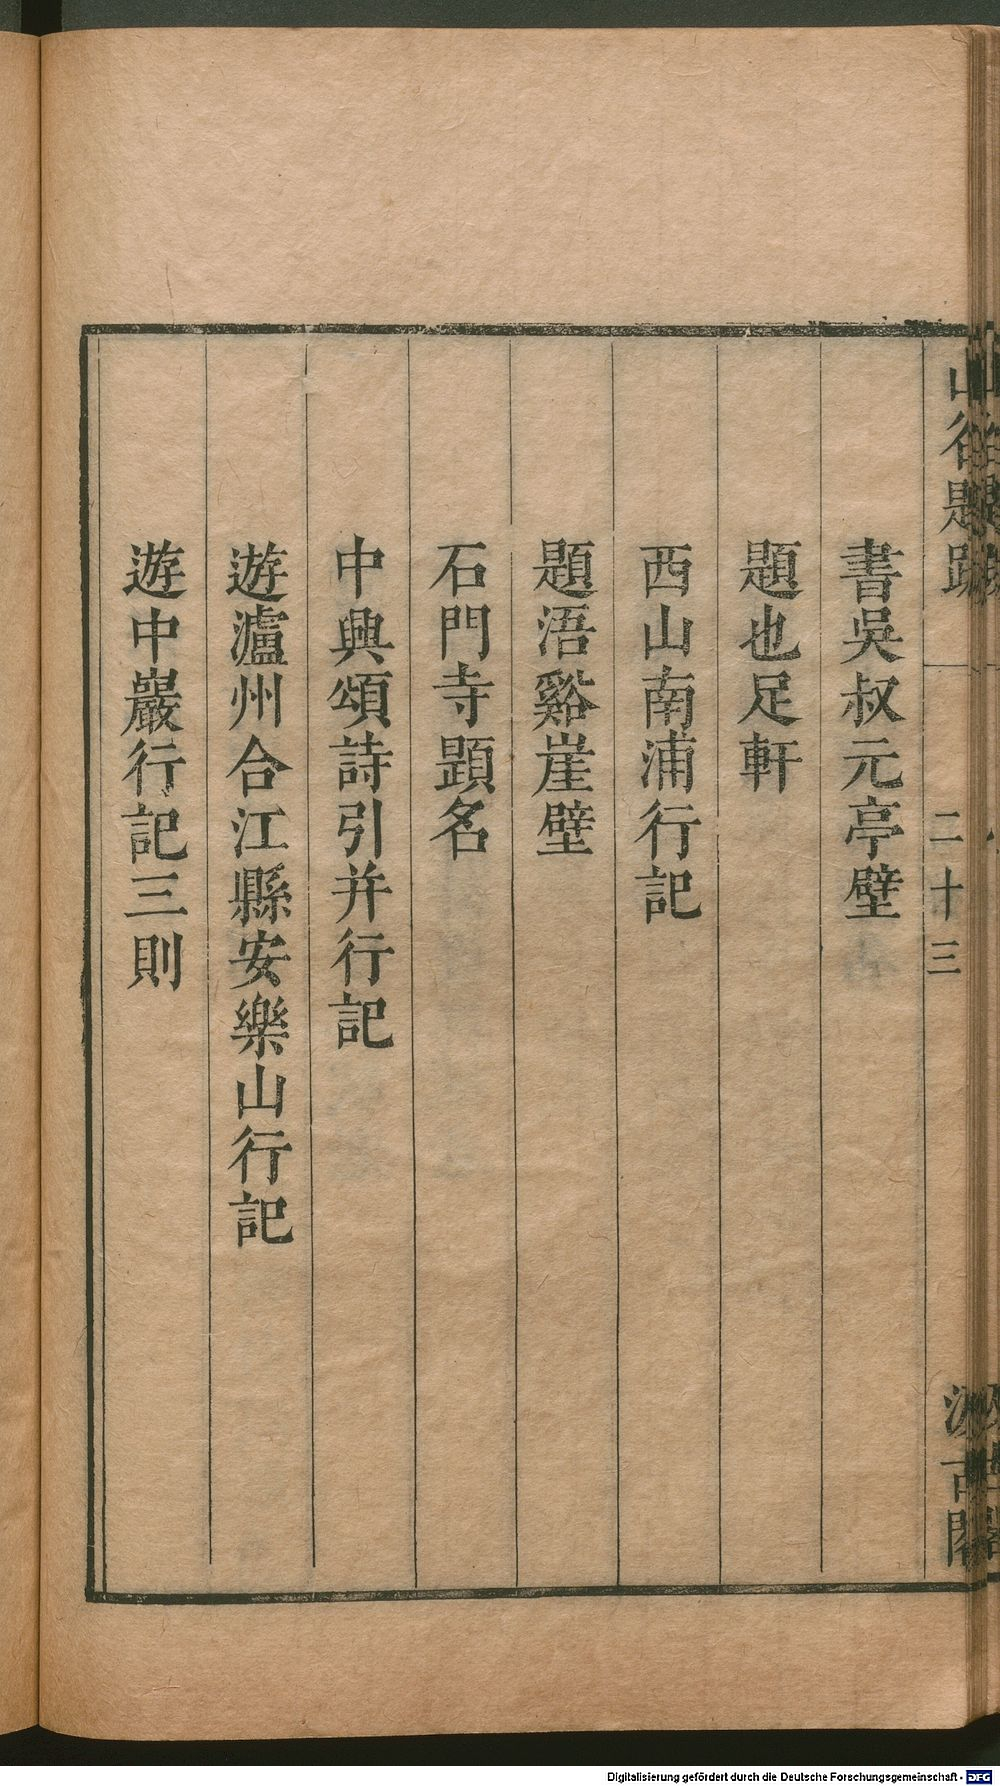 山谷題跋
二十三
汲古閣
書吳叔元亭壁
題也足軒
西山南浦行記
題浯谿崖壁
石門寺題名
中興頌詩引并行記
遊瀘州合江縣安樂山行記
遊中巖行記三則
Digitalisierung gefördert durch die Deutsche Forschungsgemeinschaft - DFG